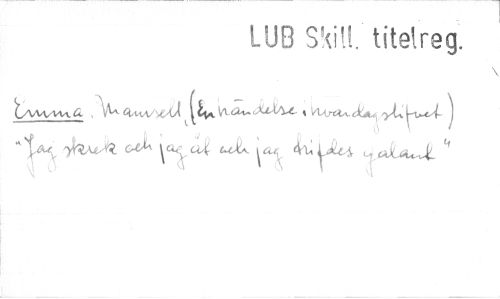 LUB Skill. titelreg.
Emma. Mamsell, (En händelse i hvardagslifvet)
"Jag skrek och jag åt och jag trifdes galant"